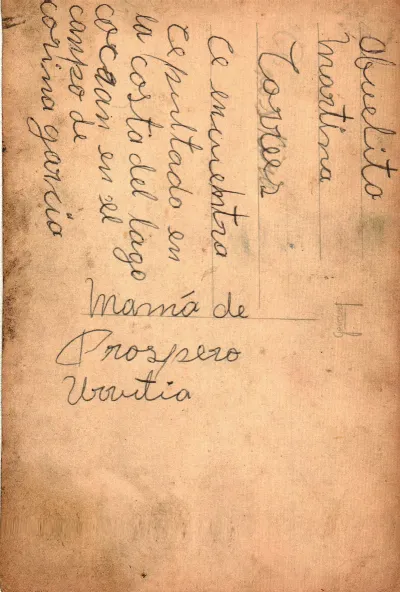 Abuelita
Martina
Torres
Ce encuentra
cepultada en
la costa del lago
cocoan en el
campo de
corina garcia
Mamá de
Prospero
Urrutia